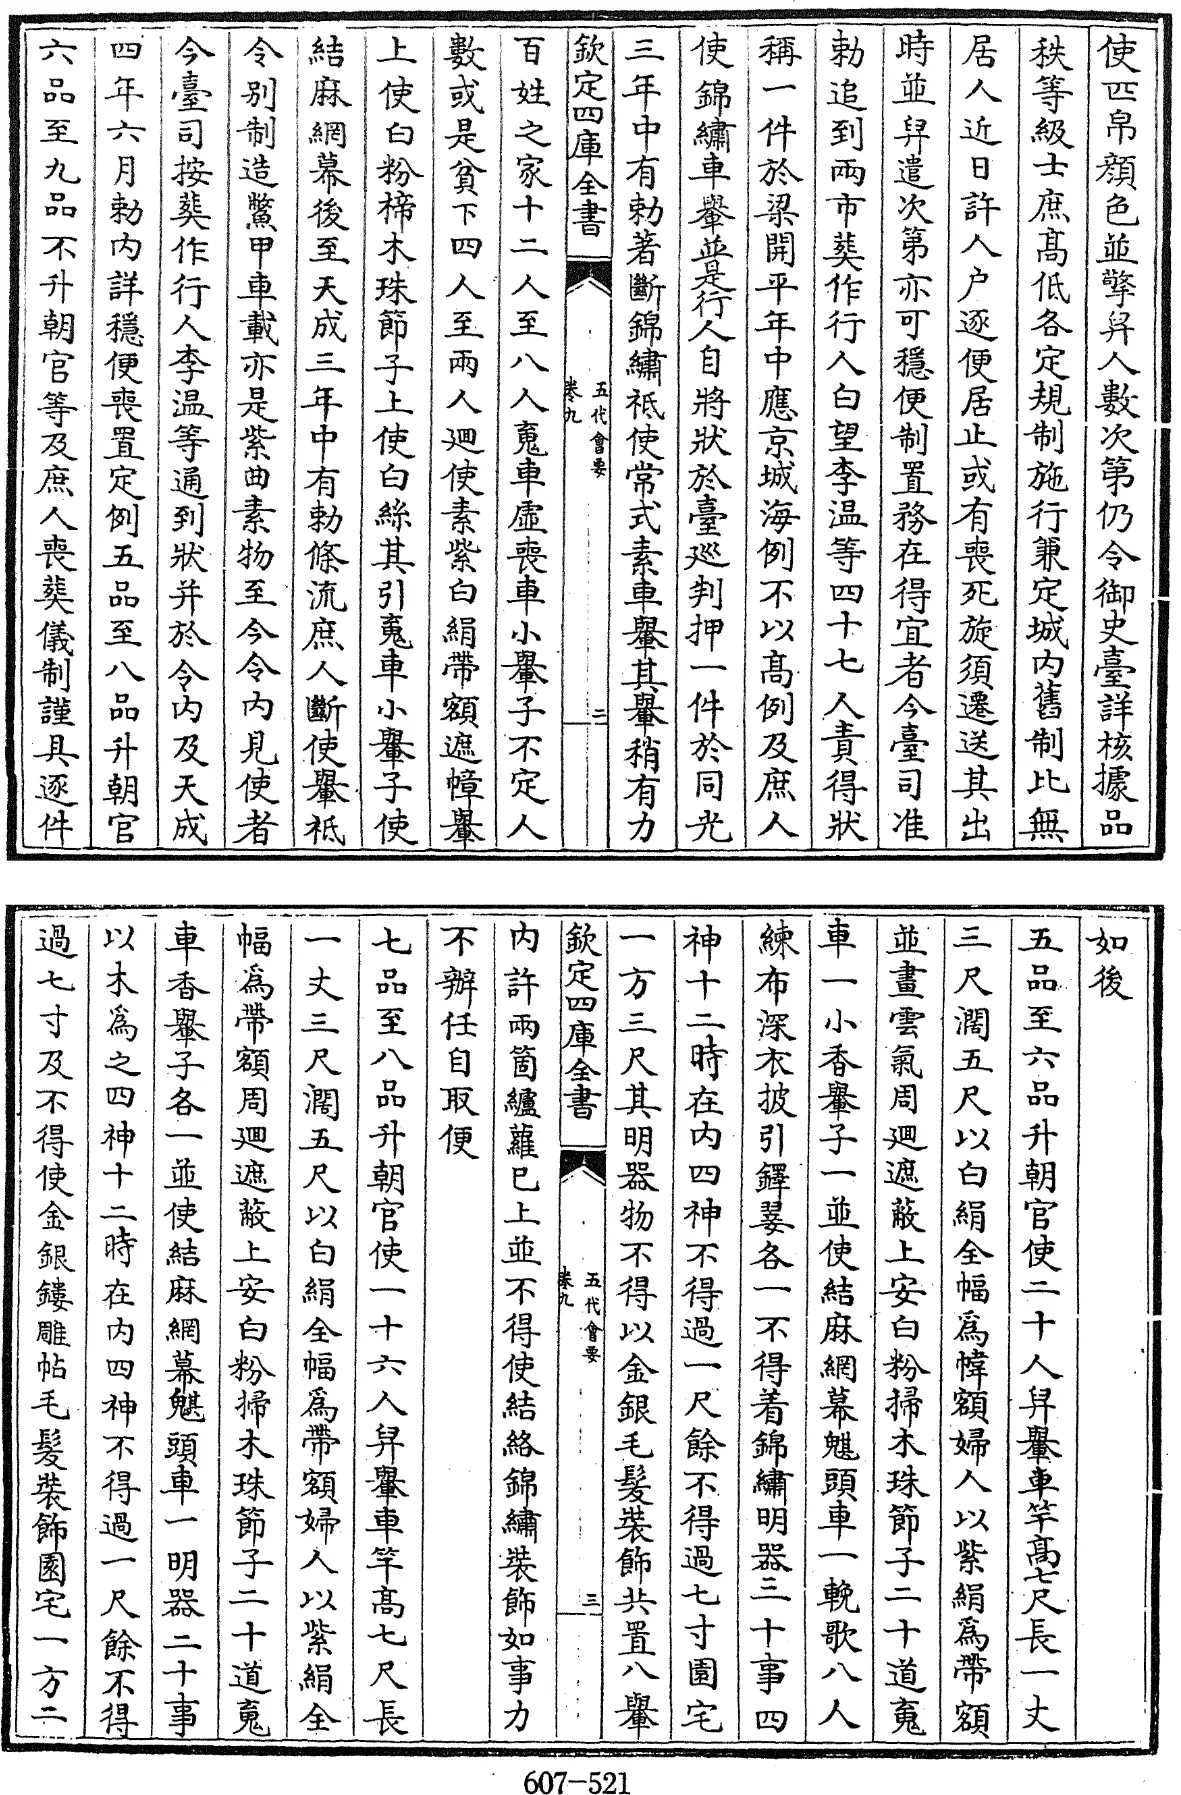 使匹帛顔色並擎舁人數次第仍令御史臺詳核據品
秩等級士庶髙低各定規制施行兼定城内舊制比無
居人近日許人户逐便居止或有喪死旋須遷送其出
時並舁遣次第亦可穏便制置務在得宜者今臺司准
勅追到兩市葬作行人白望李温等四十七人責得狀
稱一件於梁開平年中應京城海例不以髙例及庶人
使錦繡車轝並是行人自將狀於臺巡判押一件於同光
三年中有勅著斷錦繡祗使常式素車轝其轝稍有力
欽定四庫全書
五代會要
卷九
二
百姓之家十二人至八人䰟車虚喪車小轝子不定人
數或是貧下四人至兩人廻使素紫白絹帶額遮幃轝
上使白粉㮇木珠節子上使白絲其引䰟車小轝子使
結麻網幕後至天成三年中有勅條流庶人斷使轝祗
令别制造鱉甲車載亦是紫曲素物至今令内見使者
今臺司按葬作行人李温等通到狀并於令内及天成
四年六月勅内詳穏便喪置定例五品至八品升朝官
六品至九品不升朝官等及庶人喪葬儀制謹具逐件
如後
五品至六品升朝官使二十人舁轝車竿髙七尺長一丈
三尺濶五尺以白絹全幅爲幃額婦人以紫絹爲帶額
並畫雲氣周廻遮蔽上安白粉掃木珠節子二十道䰟
車一小香轝子一並使結麻網幕魌頭車一輓歌八人
練布深衣披引鐸翣各一不得着錦繡明器三十事四
神十二時在内四神不得過一尺餘不得過七寸園宅
一方三尺其明器物不得以金銀毛髮裝飾共置八轝
欽定四庫全書
五代會要
卷九
三
内許兩箇纑蘿已上並不得使結絡錦繡裝飾如事力
不辦任自取便
七品至八品升朝官使一十六人舁轝車竿髙七尺長
一丈三尺濶五尺以白絹全幅爲帶額婦人以紫絹全
幅爲帶額周廻遮蔽上安白粉掃木珠節子二十道䰟
車香轝子各一並使結麻網幕魌頭車一明器二十事
以木爲之四神十二時在内四神不得過一尺餘不得
過七寸及不得使金銀鏤雕帖毛髮裝飾園宅一方二
607-521